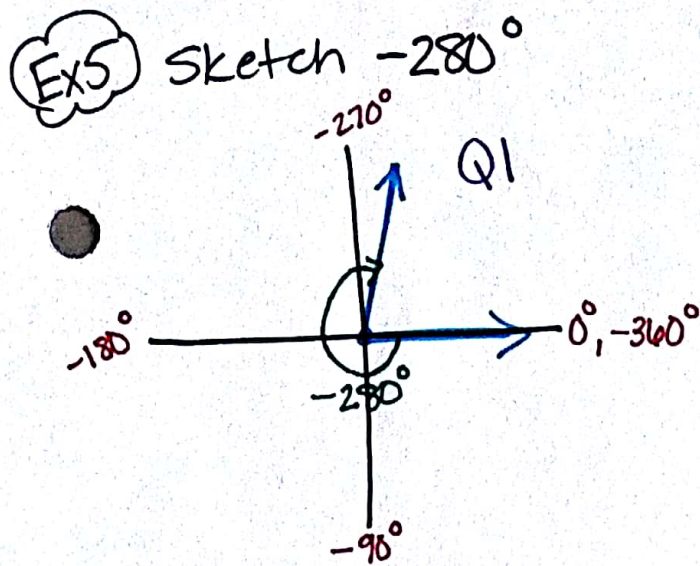 Ex5 Sketch -280°
-270°
Q1
-180°
0°, -360°
-280°
-90°